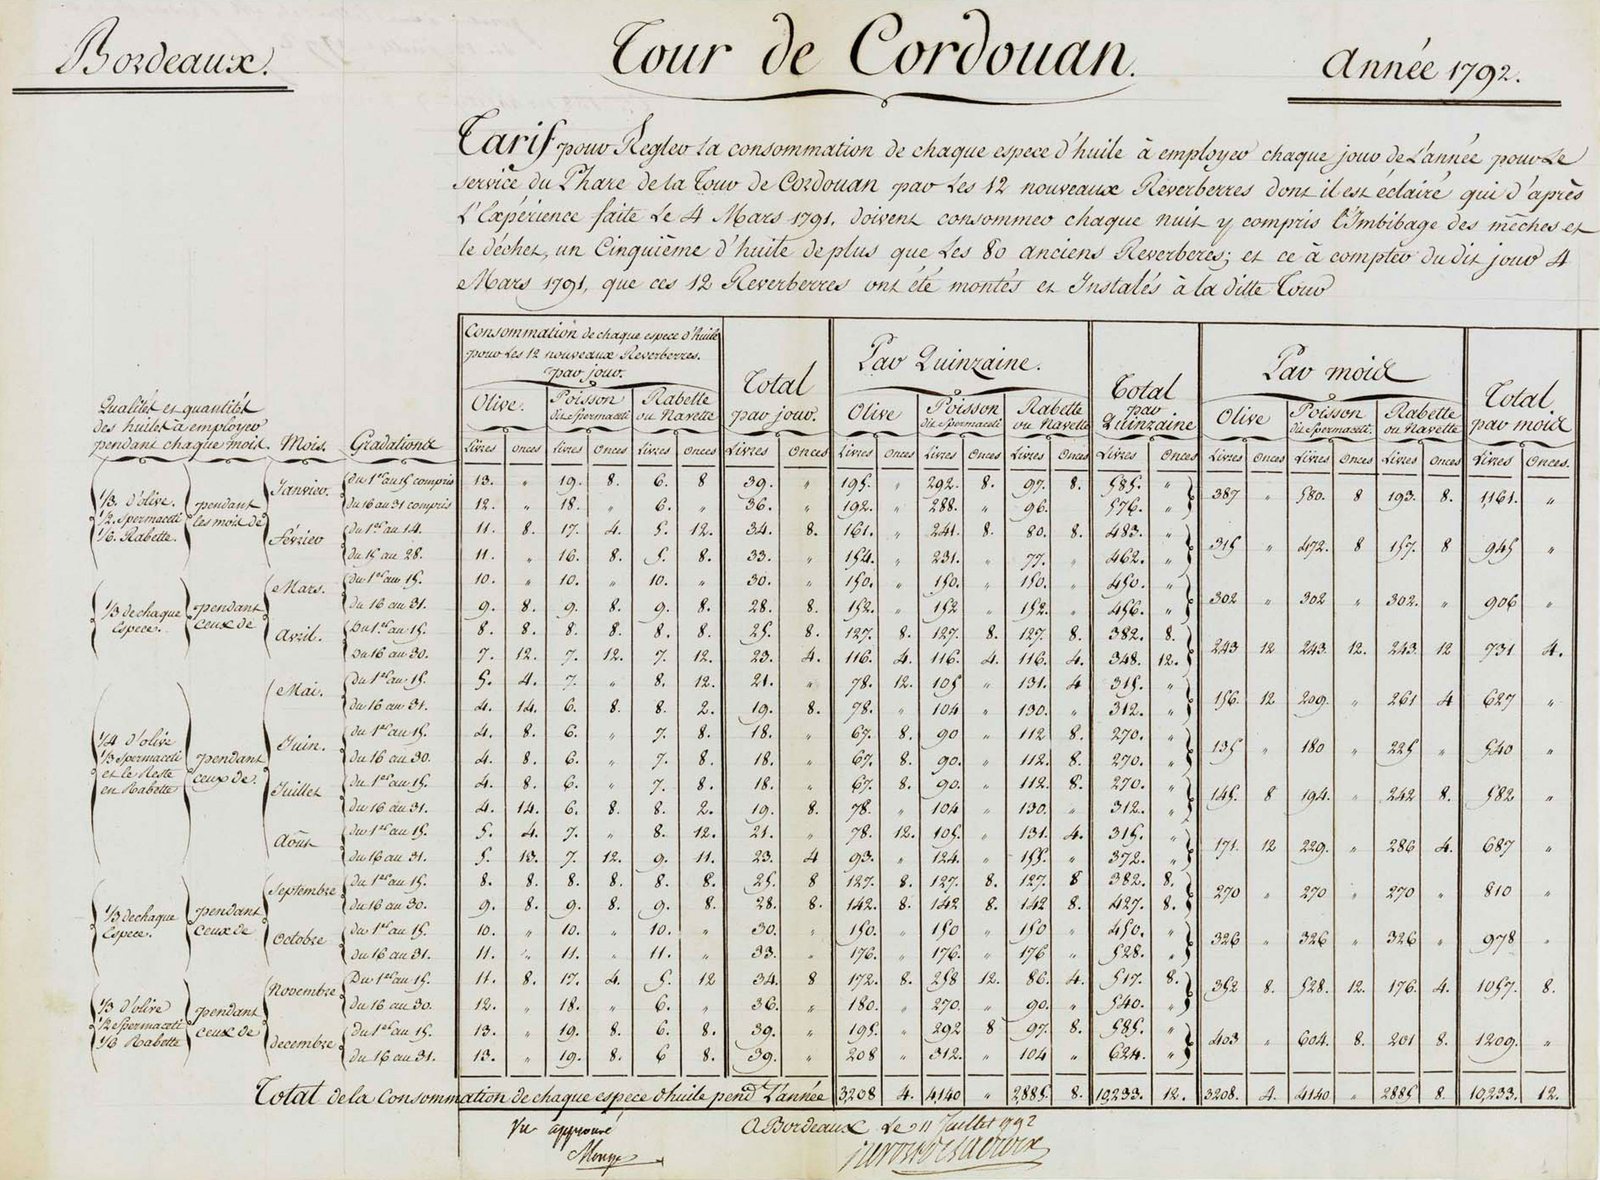 Bordeaux.
Tour de Cordouan.
Année 1792.
Tarif pour Regler la consommation de chaque espece d'huile à employer chaque jour de L'année pour Le
service du Phare de la Tour de Cordouan par Les 12 nouveaux Réverberres dont il est éclairé qui d'après
L'Expérience faite Le 4 Mars 1791, doivent consommer chaque nuit y compris l'Imbibage des mêches et
le déchet, un Cinquième d'huile de plus que Les 80 anciens Reverberes; et ce à compter du dit jour 4
Mars 1791, que ces 12 Reverberres ont été montés et Instalés à la ditte Tour
Consommation de chaque espece d'huile
pour Les 12 nouveaux Reverberres.
par jour.
Total
par jour.
Par Quinzaine.
Total
par
Quinzaine
Par mois
Total
par mois
Qualités et quantités
des huiles à employer
pendant chaque mois.
Mois.
Gradations
Olive. Poisson dit Spermaceti Rabette ou Navette
Olive Poisson dit Spermaceti Rabette ou Navette
Olive Poisson dit Spermaceti. Rabette ou Navette
Livres onces Livres Onces Livres Onces Livres Onces Livres onces Livres onces Livres Onces Livres Onces Livres Onces Livres Onces Livres Onces Livres Onces.
1/3 d'olive.
1/2 Spermaceti
1/6. Rabette.
pendant
les mois de
Janvier.
du 1er au 15 compris 13. " 19. 8. 6. 8 39. " 195. " 292. 8. 97. 8. 585. "
387 " 580. 8 193. 8. 1161. "
du 16 au 31 compris 12. " 18. " 6. " 36. " 192. " 288. " 96. " 576. "
Février
du 1er au 14. 11. 8. 17. 4. 5. 12. 34. 8. 161. " 241. 8. 80. 8. 483. "
315 " 472. 8 157. 8 945 "
du 15 au 28. 11. " 16. 8. 5. 8. 33. " 154. " 231. " 77. " 462. "
1/3 de chaque
Espece.
pendant
ceux de
Mars.
du 1er au 15. 10. " 10. " 10. " 30. " 150. " 150. " 150. " 450. "
302 " 302 " 302. " 906 "
du 16 au 31. 9. 8. 9. 8. 9. 8. 28. 8. 152. " 152 " 152. " 456. "
Avril.
Du 1er au 15. 8. 8. 8. 8. 8. 8. 25. 8. 127. 8. 127. 8. 127. 8. 382. 8.
243 12 243. 12. 243. 12 731 4.
Du 16 au 30. 7. 12. 7. 12. 7. 12. 23. 4. 116. 4. 116. 4. 116. 4. 348. 12.
1/4 d'olive
1/3 Spermaceti
et le Reste
en Rabette
pendant
ceux de.
Mai.
du 1er au 15. 5. 4. 7. " 8. 12. 21. " 78. 12. 105 " 131. 4 315. "
156. 12 209. " 261 4 627 "
du 16 au 31. 4. 14. 6. 8. 8. 2. 19. 8. 78. " 104 " 130. " 312. "
Juin.
du 1er au 15. 4. 8. 6. " 7. 8. 18. " 67. 8. 90 " 112 8. 270. "
135 " 180 " 225 " 540 "
du 16 au 30. 4. 8. 6. " 7. 8. 18. " 67. 8. 90. " 112. 8. 270. "
Juillet
du 1er au 15. 4. 8. 6. " 7. 8. 18. " 67. 8. 90. " 112. 8. 270. "
145. 8 194. " 242 8. 582 "
du 16 au 31. 4. 14. 6. 8. 8. 2. 19. 8. 78. " 104 " 130. " 312. "
Aoûst
du 1er au 15. 5. 4. 7. " 8. 12. 21. " 78. 12. 105. " 131. 4. 315. "
171. 12 229. " 286 4. 687 "
du 16 au 31. 5. 13. 7. 12. 9. 11. 23. 4 93. " 124. " 155. " 372. "
1/3 de chaque
Espece.
pendant
ceux de
Septembre
du 1er au 15. 8. 8. 8. 8. 8. 8. 25. 8 127. 8. 127. 8. 127. 8 382. 8.
270 " 270 " 270 " 810 "
du 16 au 30. 9. 8. 9. 8. 9. 8. 28. 8 142. 8. 142 8. 142 8. 427. 8.
Octobre
du 1er au 15. 10. " 10. " 10. " 30. " 150. " 150 " 150 " 450. "
326 " 326 " 326 " 978 "
du 16 au 31. 11. " 11. " 11. " 33. " 176. " 176. " 176 " 528. "
1/3 d'olive
1/2 Spermaceti
1/6 Rabette
pendant
ceux de
Novembre
Du 1er au 15. 11. 8. 17. 4. 5. 12 34. 8 172. 8. 258 12. 86. 4. 517. 8.
352 8. 528. 12. 176. 4. 1057. 8.
du 16 au 30. 12. " 18. " 6. " 36. " 180. " 270. " 90. " 540. "
Decembre
Du 1er au 15. 13. " 19. 8. 6. 8. 39. " 195. " 292 8 97. 8. 585. "
403 " 604. 8. 201 8. 1209. "
du 16 au 31. 13. " 19. 8. 6 8. 39. " 208 " 312. " 104 " 624. "
Total de la Consommation de chaque espece d'huile pend.t L'année 3208 4. 4140 " 2885. 8. 10,233. 12. 3208. 4. 4140 " 2885 8. 10,233. 12.
Vu approuvé
A Bordeaux Le 11 Juillet 1792